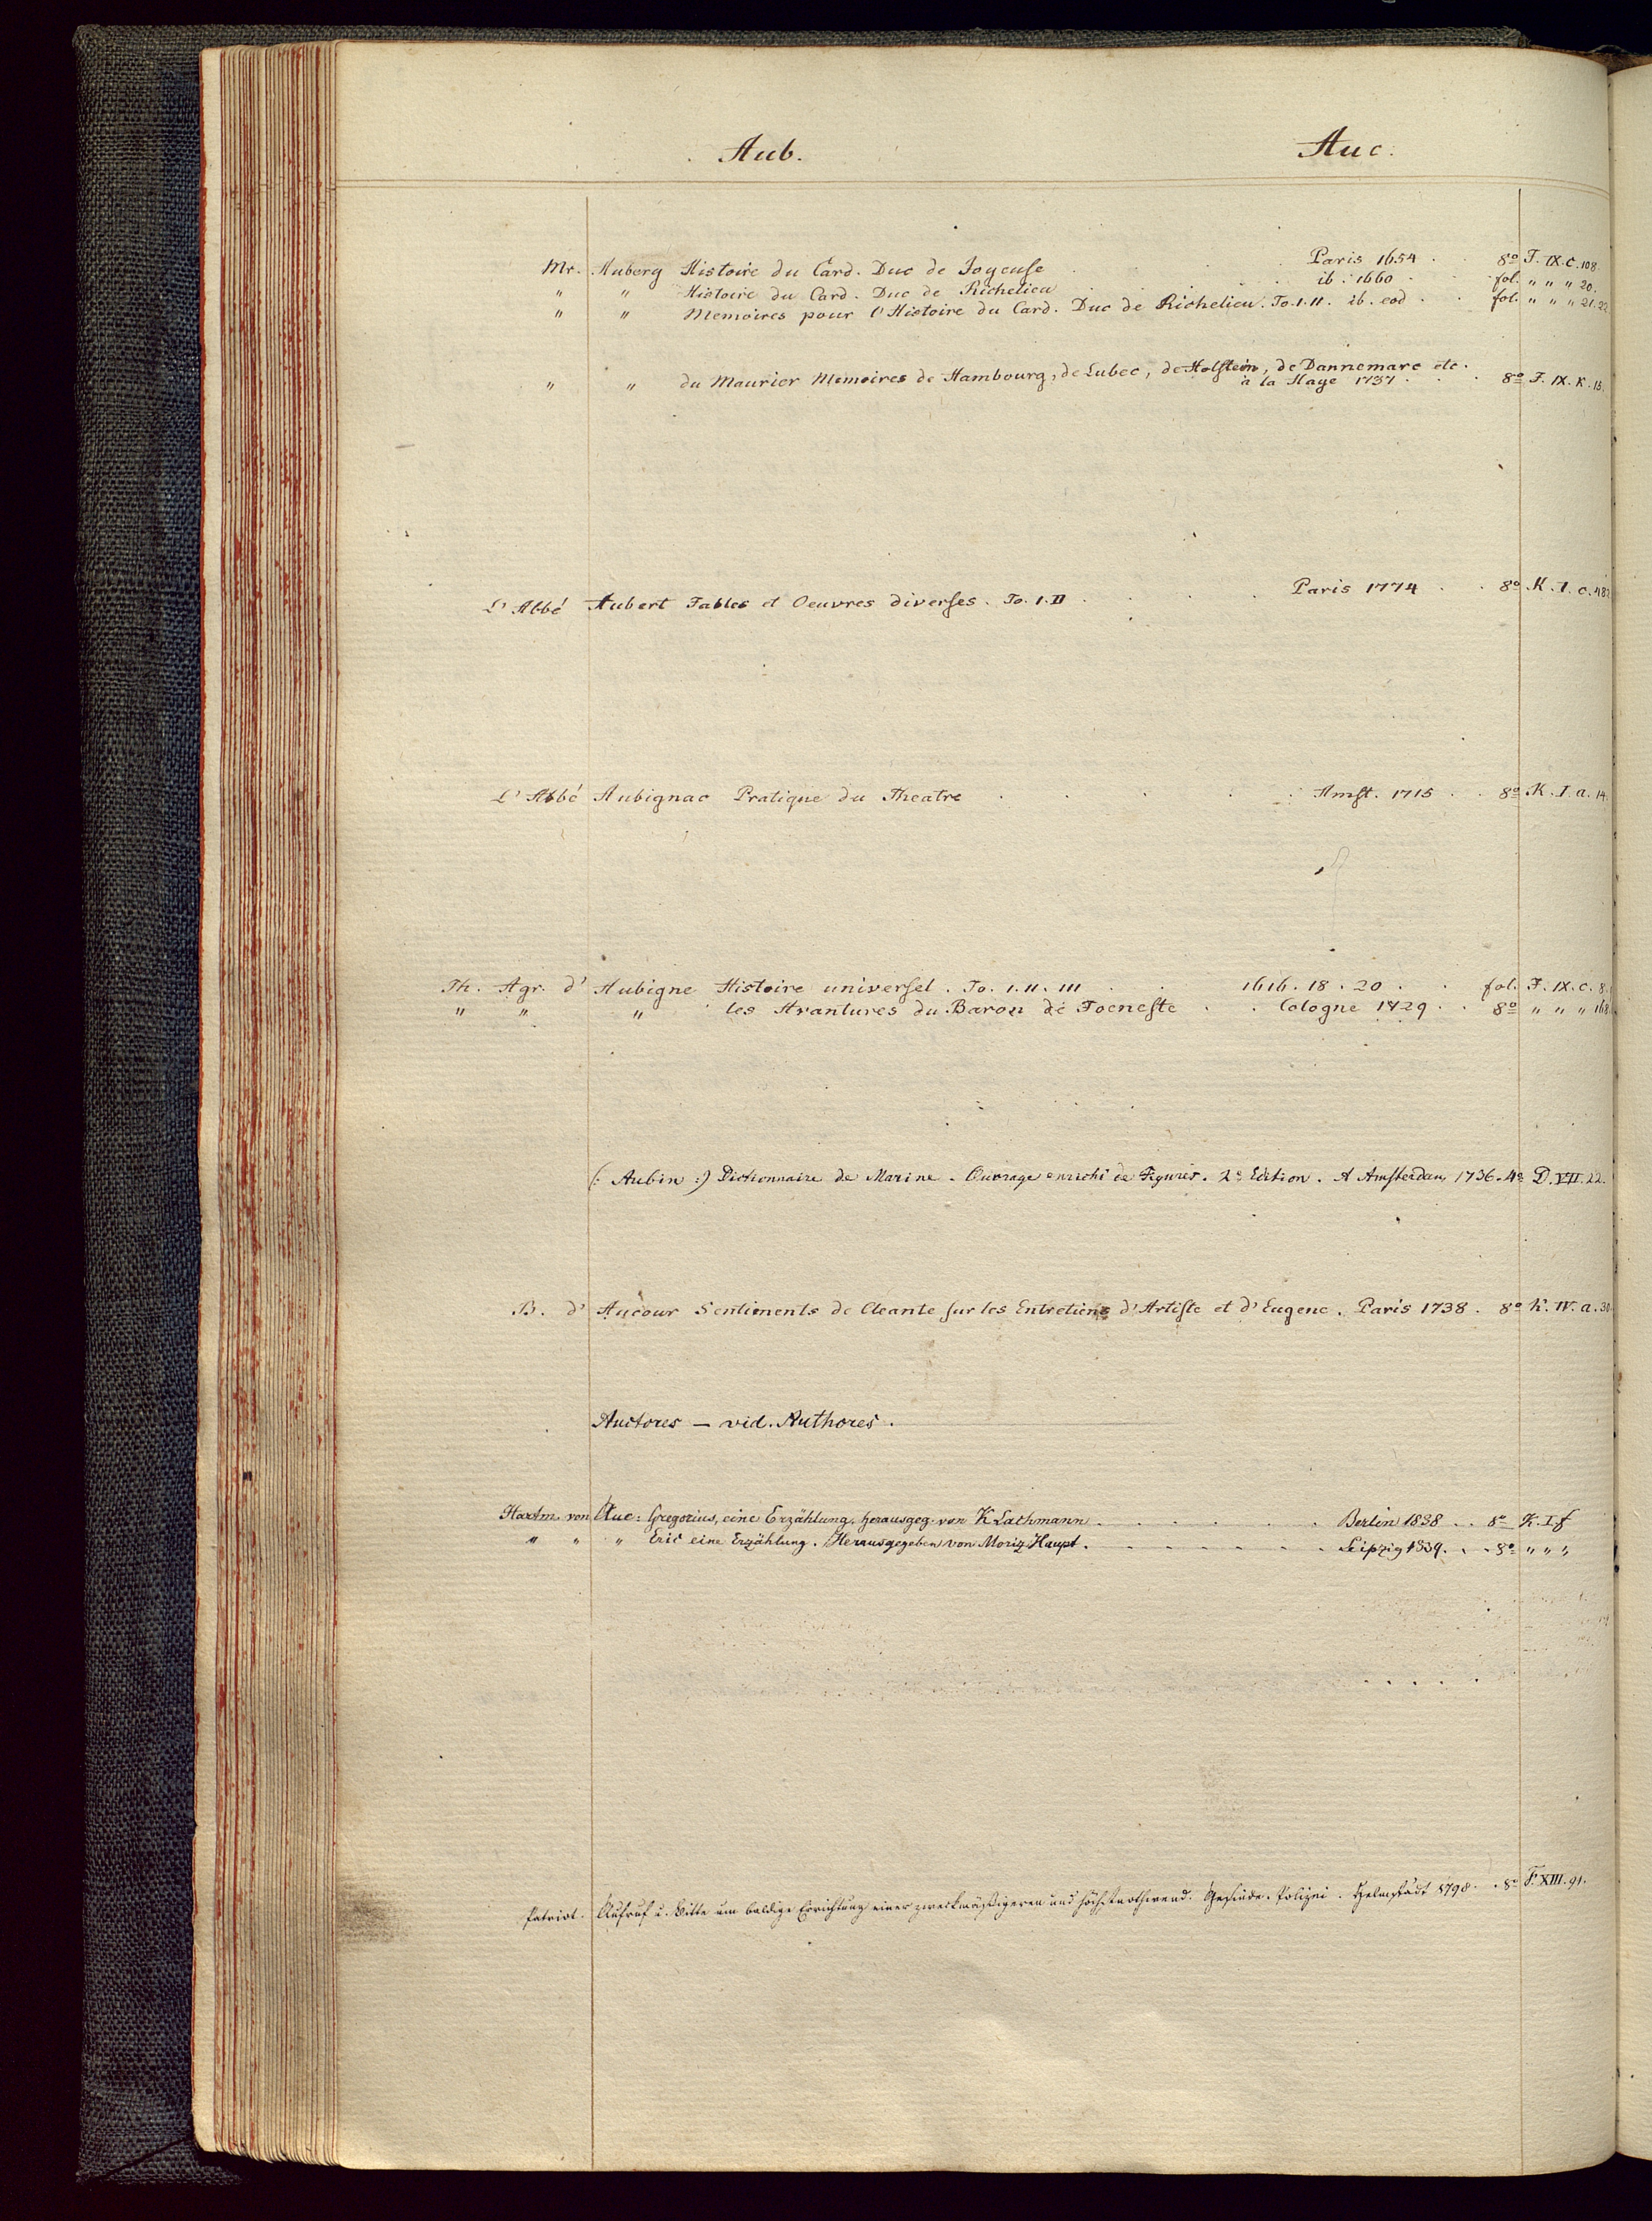 Aub. Auc.
Mr. Aubery Histoire du Card. Duc de Joyeuse . . . Paris 1654 . . 8º F. IX. C. 108.
" " Histoire du Card. Duc de Richelieu . . . ib. 1660 . . fol. " " " 20.
" " Memoires pour l'Histoire du Card. Duc de Richelieu. To. I. II. ib. eod . . fol. " " " 21. 22
" " du Maurier Memoires de Hambourg, de Lubec, de Holstein, de Dannemarc etc.
à la Haye 1737 . . . 8º F. IX. K. 15.
L'Abbé Aubert Fables et Oeuvres diverses. To. I. II . . . Paris 1774 . . 8º K. I. c. 482
L'Abbé Aubignac Pratique du Theatre . . . Amst. 1715 . . 8º K. I. a. 14.
Th. Agr. d' Aubigne Histoire universel. To. I. II. III . . 1616. 18. 20 . . fol. F. IX. C. 8.
" " " les Avantures du Baron de Foeneste . . Cologne 1729 . . 8º " " " 168
(: Aubin :) Dictionnaire de Marine. Ouvrage enrichi de Figures. 2e Edition. A Amsterdam 1736. 4º D. VII. 22.
B. d' Aucour Sentiments de Cleante sur les Entretiens d'Artiste et d'Eugene. Paris 1738. 8º K. IV. a. 30
Auctores — vid. Authores.
Hartm. von Aue: Gregorius, eine Erzählung. Herausgeg. von K Lachmann . . . Berlin 1838 . . 8º K. I. f
" " " Eric eine Erzählung. Herausgegeben von Moriz Haupt . . . Leipzig 1839 . . 8º " " "
Patriot. Aufruf u. Bitte um baldige Errichtung einer zweckmäßigeren und höchstnothwend. Gesinde-Polizei. Helmstädt 1798 . . 8º F. XIII. 91.